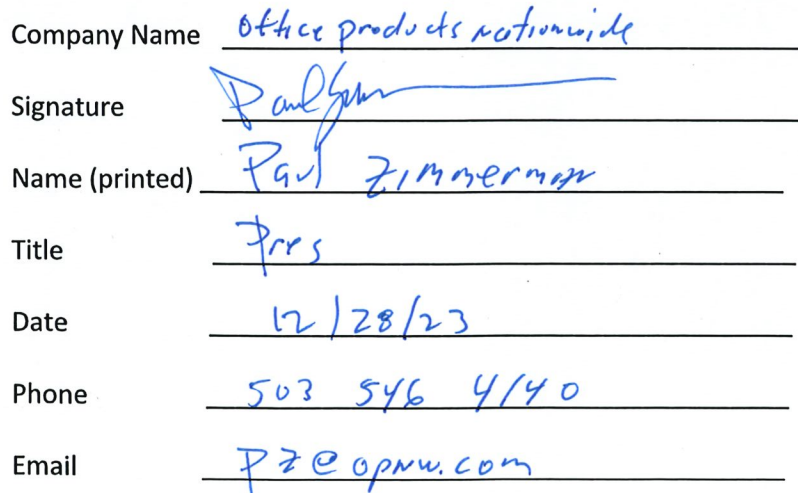 Company Name Office products nationwide
Signature
Name (printed) Paul Zimmerman
Title Pres
Date 12/28/23
Phone 503 546 4140
Email PZ@opnw.com